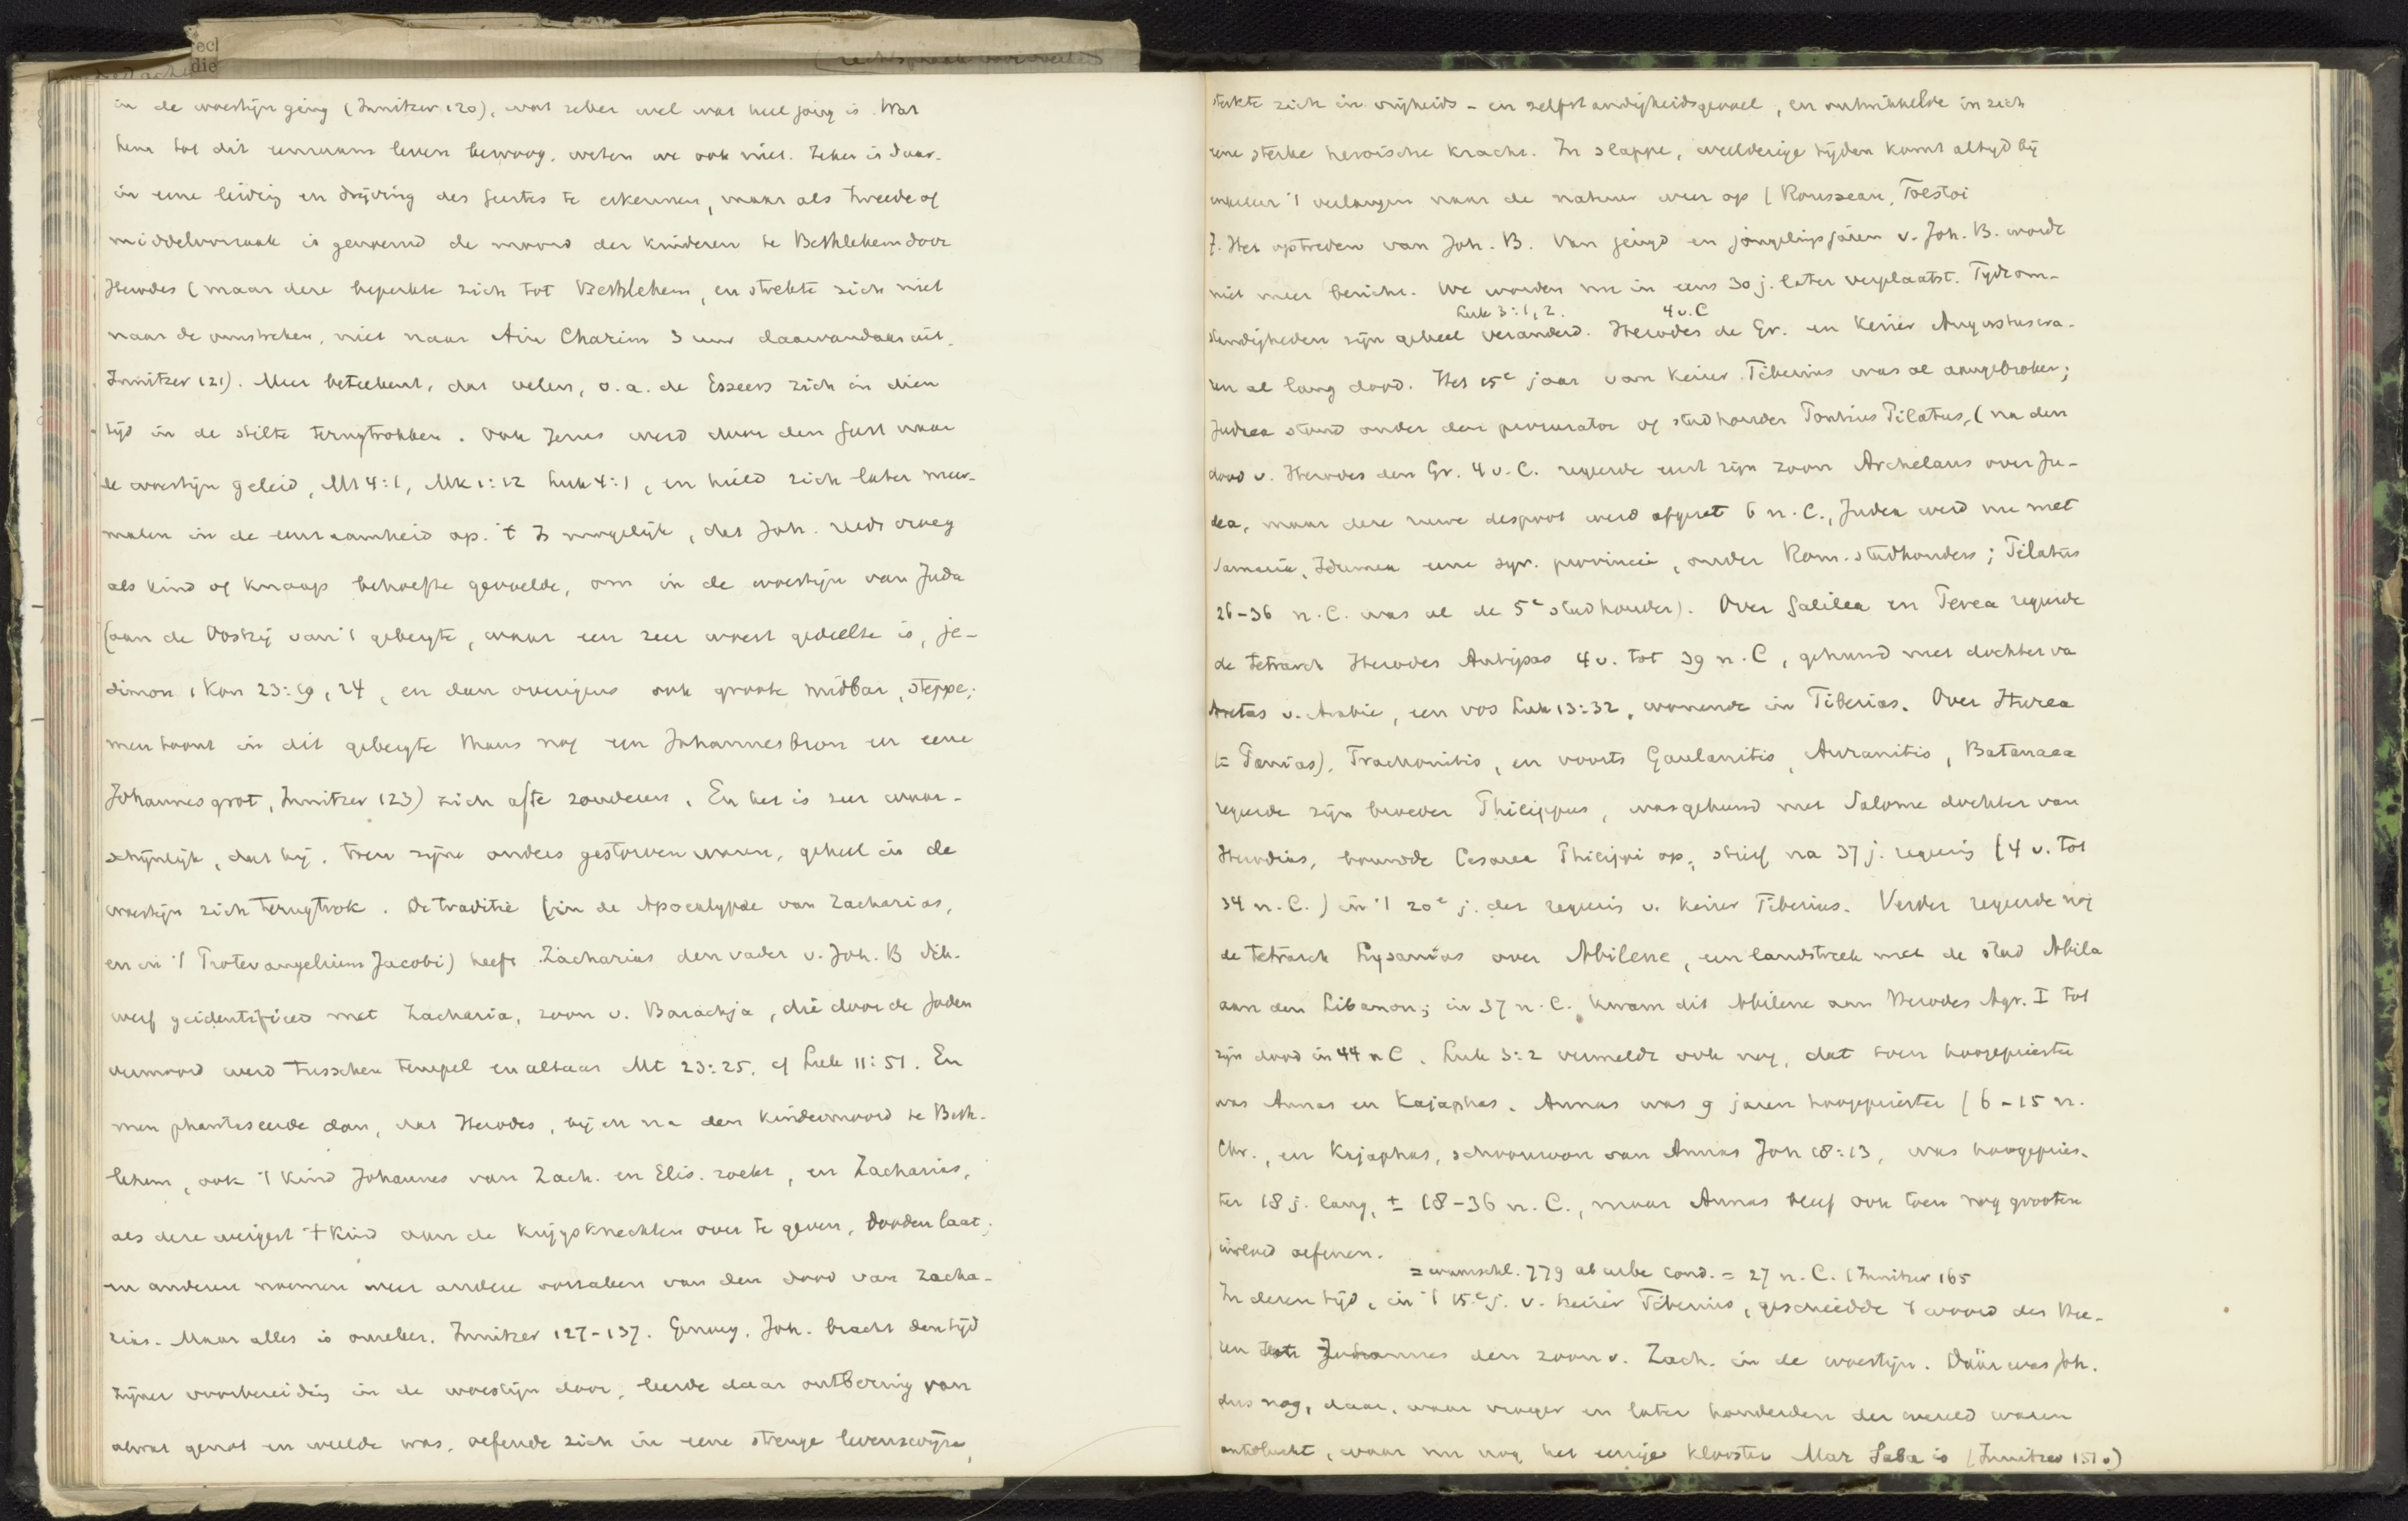 in de woestijn ging (Innitzer 120), wat zeker wel wat heel jong is. Wat
hem tot dit eenzaam leven bewoog, weten we ook niet. Zeker is daar-
in eene leiding en drijving des Geestes te erkennen, maar als tweede of
middeloorzaak is genoemd de moord der kinderen te Bethlehem door
Herodes (maar deze beperkte zich tot Bethlehem, en strekte zich niet
naar de omstreken, niet naar Ain Charim 3 uur daarvandaan uit.
Innitzer 121). Meer beteekent, dat velen, o.a. de Esseers zich in dien
tijd in de stilte terugtrokken. Ook Jezus werd door den Geest naar
de woestijn geleid, Mt 4:1, Mk 1:12 Luk 4:1, en hield zich later meer-
malen in de eenzaamheid op. 't Is mogelijk, dat Joh. reeds vroeg
als kind of knaap behoefte gevoelde, om in de woestijn van Juda
(aan de Oostzij van 't gebergte, waar een zeer woest gedeelte is, je-
simon 1 Kon 23:19, 24, en dan overigens ook groote midbar, steppe;
men toont in dit gebergte thans nog een Johannesbron en eene
Johannesgrot, Innitzer 123) zich af te zonderen. En het is zeer waar-
schijnlijk, dat hij, toen zijne ouders gestorven waren, geheel in de
woestijn zich terugtrok. De traditie (in de Apocalypse van Zacharias,
en in 't Protevangelium Jacobi) heeft Zacharias den vader v. Joh. B dik-
werf geidentificeerd met Zacharia, zoon v. Barachja, die door de Joden
vermoord werd tusschen tempel en altaar Mt 23:25, cf Luk 11:51. En
men phantaseerde dan, dat Herodes, bij en na den kindermoord te Beth-
lehem, ook 't kind Johannes van Zach. en Elis. zoekt, en Zacharias,
als deze weigert 't kind aan de krijgsknechten over te geven, dooden laat;
en anderen noemen weer andere oorzaken van den dood van Zacha-
rias. Maar alles is onzeker. Innitzer 127-137. Genoeg, Joh. bracht den tijd
zijner voorbereiding in de woestijn door, leerde daar ontbering van
alwat genot en weelde was, oefende zich in eene strenge levenswijze,
sterkte zich in vrijheids- en zelfstandigheidsgevoel, en ontwikkelde in zich
eene sterke heroische kracht. In slappe, weelderige tijden komt altijd bij
enkelen 't verlangen naar de natuur weer op (Rousseau, Tolstoi
7. Het optreden van Joh. B. Van jeugd en jongelingsjaren v. Joh. B. wordt
niet meer bericht. We worden nu in eens 30 j. later verplaatst. Tijdsom-
Luk 3:1, 2. 4 v. C
standigheden zijn geheel veranderd. Herodes de Gr. en keizer Augustus wa-
ren al lang dood. Het 15e jaar van keizer Tiberius was al aangebroken;
Judea stond onder den procurator of stadhouder Pontius Pilatus, (na den
dood v. Herodes den Gr. 4 v. C. regeerde eerst zijn zoon Archelaus over Ju-
dea, maar deze despoot werd afgezet 6 n. C., Judea werd nu met
Samaria, Idumea eene syr. provincie, onder Rom. stadhouders; Pilatus
26-36 n. C. was al de 5e stadhouder). Over Galilea en Perea regeerde
de tetrarch Herodes Antipas 4 v. tot 39 n. C, gehuwd met dochter va
Aretas v. Arabie, een vos Luk 13:32, wonende in Tiberias. Over Iturea
(= Panias), Trachonitis, en voorts Gaulanitis, Auranitis, Batanaea
regeerde zijn broeder Philippus, was gehuwd met Salome dochter van
Herodias, bouwde Cesarea Philippi op, stierf na 37 j. regeering (4 v. tot
34 n. C.) in 't 20e j. der regeering v. keizer Tiberius. Verder regeerde nog
de tetrarch Lysanias over Abilene, een landstreek met de stad Abila
aan den Libanon; in 37 n. C. kwam dit Abilene aan Herodes Agr. I tot
zijn dood in 44 n C. Luk 3:2 vermeldt ook nog, dat toen hoogepriester
was Annas en Kajaphas. Annas was 9 jaren hoogepriester (6-15 n.
Chr., en Kajaphas, schoonzoon van Annas Joh 18:13, was hoogepries-
ter 18 j. lang, ± 18-36 n. C., maar Annas bleef ook toen nog grooten
invloed oefenen.
= waarschl. 779 ab urbe cond. = 27 n. C. (Innitzer 165
In dezen tijd, in 't 15e j. v. keizer Tiberius, geschiedde 't woord des Hee-
ren tot Johannes den zoon v. Zach. in de woestijn. Dáár was Joh.
dus nog, daar, waar vroeger en later honderden der wereld waren
ontvlucht, waar nu nog het eenige klooster Mar Saba is (Innitzer 151.)